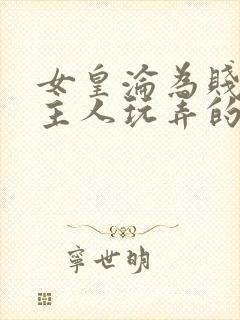 女皇淪為賤
主人玩弄的
寧世明